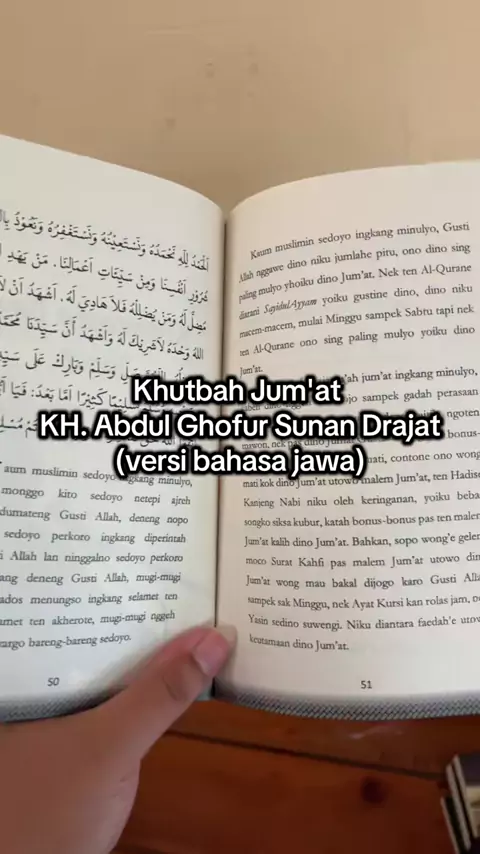 اَلْحَمْدُ لِلّٰهِ نَحْمَدُهُ وَنَسْتَعِيْنُهُ وَنَسْتَغْفِرُهُ وَنَعُوْذُ
شُرُوْرِ أَنْفُسِنَا وَمِنْ سَيِّئَاتِ أَعْمَالِنَا. مَنْ يَهْدِ
مُضِلَّ لَهُ وَمَنْ يُضْلِلْهُ فَلَا هَادِيَ لَهُ. أَشْهَدُ أَنْ لَا
اللهُ وَحْدَهُ لَا شَرِيْكَ لَهُ وَأَشْهَدُ أَنَّ سَيِّدَنَا
صَلِّ وَسَلِّمْ وَبَارِكْ عَلَى
كَثِيْرًا أَمَّا بَعْدُ:
aum muslimin sedoyo ingkang minulyo,
monggo kito sedoyo netepi ajreh
dumateng Gusti Allah, deneng nopo
sedoyo perkoro ingkang diperintah
Allah lan ninggalno sedoyo perkoro
ang deneng Gusti Allah, mugi-mugi
ados menungso ingkang selamet ten
amet ten akherote, mugi-mugi nggeh
argo bareng-bareng sedoyo.
50
Kaum muslimin sedoyo ingkang minulyo, Gusti
Allah nggawe dino niku jumlahe piru, ono dino sing
paling mulyo yhoiku dino Jum'at. Nek ten Al-Qurane
diarani Sayidul Ayyam yoiku gustine dino, dino niku
macem-macem, mulai Minggu sampek Sabtu tapi nek
ten Al-Qurane ono sing paling mulyo yoiku dino
Jum'at.
jum'at ingkang minulyo,
sampek gadah perasaan
ngoten
bonus-
mati, contone ono wong
mati kok dino Jum'at utowo malem Jum'at, ten Hadise
Kanjeng Nabi niku oleh keringanan, yoiku beba
songko siksa kubur, katah bonus-bonus pas ten malem
Jum'at kalih dino Jum'at. Bahkan, sopo wong'e gelem
moco Surat Kahfi pas malem Jum'at utowo din
Jum'at wong mau bakal dijogo karo Gusti Alla
sampek sak Minggu, nek Ayat Kursi kan rolas jam, n
Yasin sedino suwengi. Niku diantara faedah'e utow
keutamaan dino Jum'at.
51
Khutbah Jum'at
KH. Abdul Ghofur Sunan Drajat
(versi bahasa jawa)